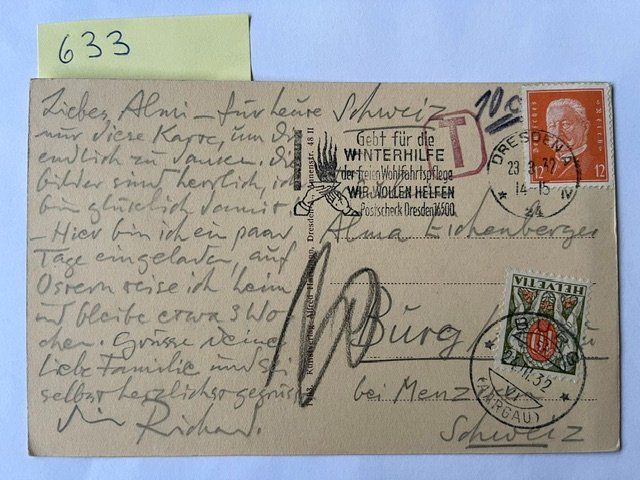 633
Liebes Almi – für heute
nur diese Karte, um Dir
endlich zu danken. Die
Bilder sind herrlich, ich
bin glücklich damit
– Hier bin ich ein paar
Tage eingeladen, auf
Ostern reise ich heim
und bleibe etwa 3 Wo-
chen. Grüsse Deine
liebe Familie und sei
selbst herzlichst gegrüsst
Dein Richard.
Schweiz
10 c
T
Gebt für die
WINTERHILFE
der freien Wohlfahrtspflege
WIR WOLLEN HELFEN
Postscheck Dresden 16500
DRESDEN A
23 3 32
14-15
24
12 12
Alma Eichenberger
Burg
bei Menz
Schweiz
10
Kunstverlag Alfred Hartmann, Dresden 48 II
HELVETIA
10
BURG
III.32
VI
(AARGAU)